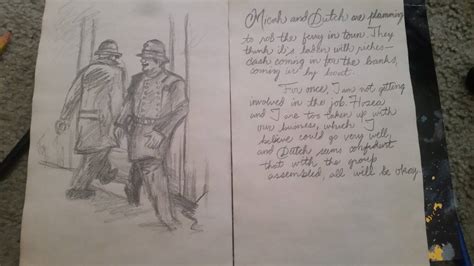 Micah and Dutch are planning
to rob the ferry in town. They
think it's laden with riches-
cash coming in for the banks,
coming in by boat.
For once, I am not getting
involved in the job. Hosea
and I are too taken up with
our business, which I
believe could go very well,
and Dutch seems confident
that with the group
assembled, all will be okay.